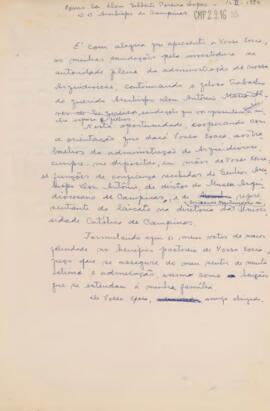 Exmo Sr. Dom Gilberto Pereira Lopes
CMP 2.9.16
DD Arcebispo de Campinas
É com alegria que apresento a Vossa Excia.
as minhas saudações pela investidura na
autoridade plena da administração de nossa
Arquidiocese, continuando o zeloso trabalho
do querido Arcebispo Dom Antônio Maria
Nesta oportunidade, cooperando com
a orientação que dará Vossa Excia. aos tra-
balhos da administração da Arquidiocese,
cumpre-me depositar, em mãos de Vossa Excia.
as funções de confiança recebidas do Senhor Arce-
bispo Dom Antônio, de diretor do Museu Arqui-
diocesano de Campinas, e de repre-
sentante do laicato na diretoria da Univer-
sidade Católica de Campinas.
Formulando aqui os meus votos de maior
no benefício pastoral de Vossa Excia.,
peço que se assegure do meu sentir de muita
estima e admiração, assim como bençãos
que se estendam à minha família
De Vossa Excia. amigo obrigado,